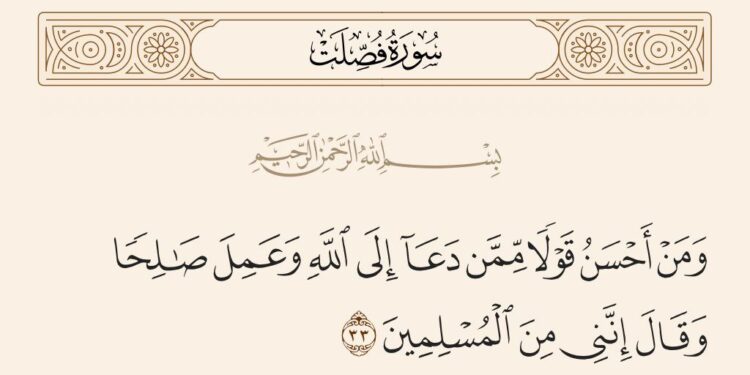 سُورَةُ فُصِّلَتْ
بِسْمِ ٱللَّهِ ٱلرَّحْمَٰنِ ٱلرَّحِيمِ
وَمَنْ أَحْسَنُ قَوْلًا مِّمَّن دَعَآ إِلَى ٱللَّهِ وَعَمِلَ صَـٰلِحًا
وَقَالَ إِنَّنِى مِنَ ٱلْمُسْلِمِينَ ٣٣